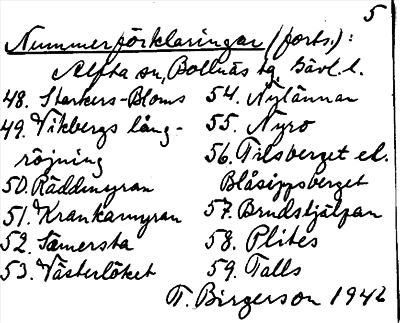 5
Nummerförklaringar (forts.):
Alfta sn, Bollnäs tg, Gävl. l.
48. Starkers-Bloms
49. Vikbergs lång-
röjning
50. Räddmyran
51. Krankamyran
52. Samersta
53. Västerlöket
54. Nylännan
55. Nyro
56. Tilsberget el.
Blåsippsberget
57. Brudstjälpan
58. Plites
59. Talls
T. Birgerson 1946